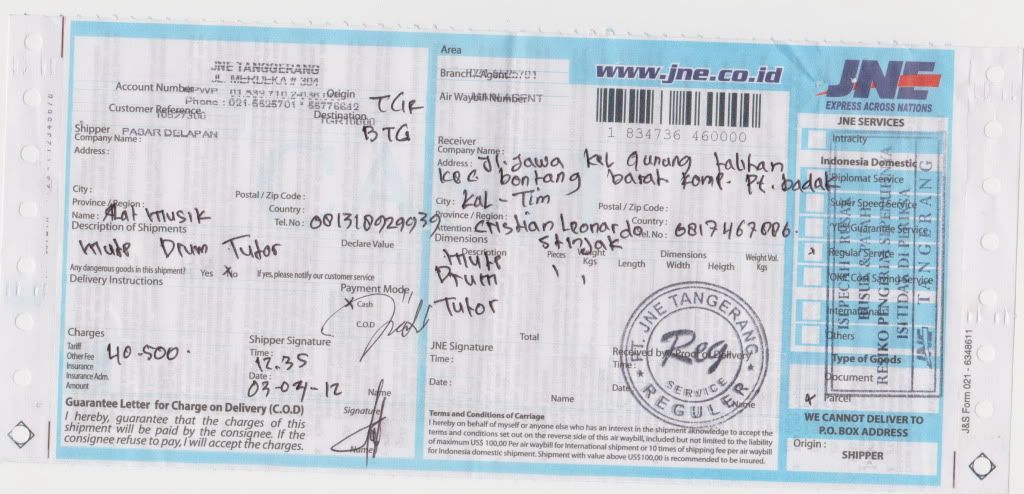 JNE TANGGERANG
JL. MERDEKA # 304
Account Number
Origin TGR
Phone : 021-5525701 * 55776642
Customer Reference
Destination BTG
10527300
TGR10000
Shipper PAGAR DELAPAN
Company Name :
Address :
City :
Postal / Zip Code :
Province / Region :
Country :
Name : Alat Musik
Tel. No : 081318029939
Description of Shipments
Declare Value
Mute Drum Tutor
Any dangerous goods in this shipment? Yes No If yes, please notify our customer service
Delivery Instructions
Payment Mode
x Cash
C.O.D
Charges
Tariff 40.500
Other Fee
Insurance
Insurance Adm.
Amount
Shipper Signature
Time : 12.35
Date :
03-04-12
Name
Guarantee Letter for Charge on Delivery (C.O.D)
I hereby, guarantee that the charges of this
shipment will be paid by the consignee. If the
consignee refuse to pay, I will accept the charges.
Signature
Name
Area
Branch / Agent
Air Waybill Number
www.jne.co.id
1 834736 460000
Receiver
Company Name :
Address : Jl. Jawa kel gunung talihan
kec bontang barat komp. Pt. badak
City : Kal - Tim
Postal / Zip Code :
Province / Region :
Country :
Attention : Cristian Leonardo
Tel. No : 0817467006.
Stnjak
Dimensions
Description Pieces Weight Kgs Length Dimensions Width Heigth Weight Vol. Kgs
Mute
Drum
Tutor
Total
JNE Signature
Time :
Date :
Name
Received by / Proof of Delivery
Time :
Date
Name
PT. JNE TANGERANG
Reg
SERVICE
REGULER
Terms and Conditions of Carriage
I hereby on behalf of myself or anyone else who has an interest in the shipment aknowledge to accept the
terms and conditions set out on the reverse side of this air waybill, included but not limited to the liability
of maximum US$ 100,00 Per air waybill for International shipment or 10 times of shipping fee per air waybill
for Indonesia domestic shipment. Shipment with value above US$100,00 is recommended to be insured.
JNE
EXPRESS ACROSS NATIONS
JNE SERVICES
Intracity
Indonesia Domestic
Diplomat Service
Super Speed Service
YES Guarantee Service
x Regular Service
OKE Cost Saving Service
International
Others
Type of Goods
Document
x Parcel
WE CANNOT DELIVER TO
P.O. BOX ADDRESS
Origin :
SHIPPER
ISI TIDAK DI PERIKSA
JNE TANGERANG
J&S Form 021 - 6348611